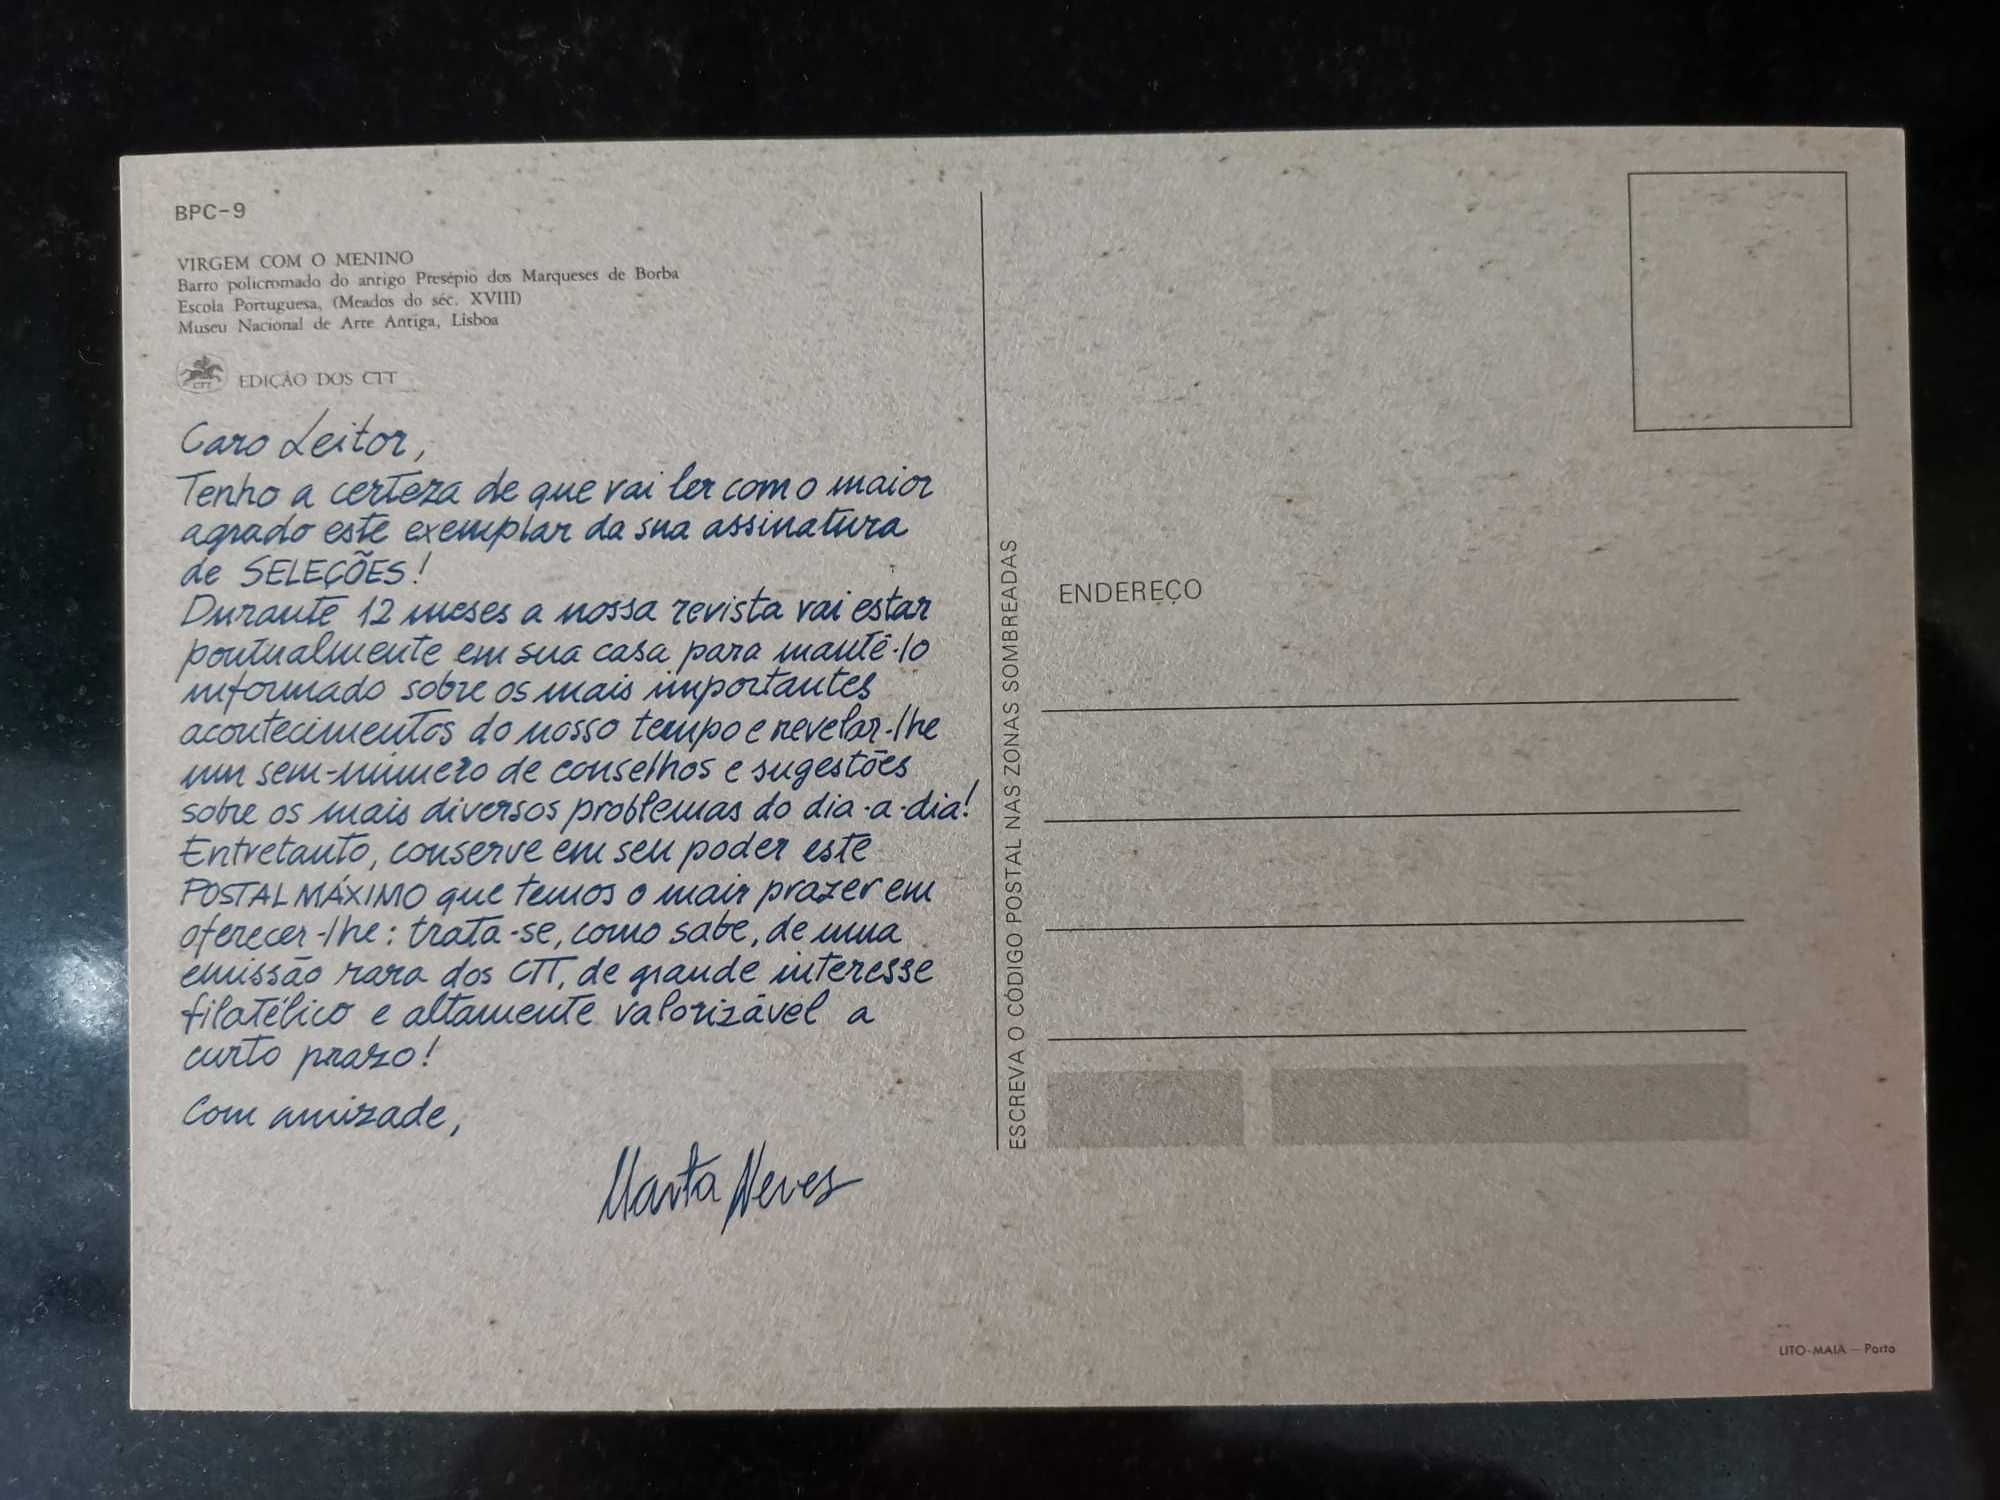 BPC-9
VIRGEM COM O MENINO
Barro policromado do antigo Presépio dos Marqueses de Borba
Escola Portuguesa, (Meados do séc. XVIII)
Museu Nacional de Arte Antiga, Lisboa
CTT
EDIÇÃO DOS CTT
Caro Leitor,
Tenho a certeza de que vai ler com o maior
agrado este exemplar da sua assinatura
de SELEÇÕES!
Durante 12 meses a nossa revista vai estar
pontualmente em sua casa para mantê-lo
informado sobre os mais importantes
acontecimentos do nosso tempo e revelar-lhe
um sem-número de conselhos e sugestões
sobre os mais diversos problemas do dia-a-dia!
Entretanto, conserve em seu poder este
POSTAL MÁXIMO que temos o maior prazer em
oferecer-lhe: trata-se, como sabe, de uma
emissão rara dos CTT, de grande interesse
filatélico e altamente valorizável a
curto prazo!
Com amizade,
Marta Neves
ESCREVA O CÓDIGO POSTAL NAS ZONAS SOMBREADAS
ENDEREÇO
LITO-MAIA — Porto